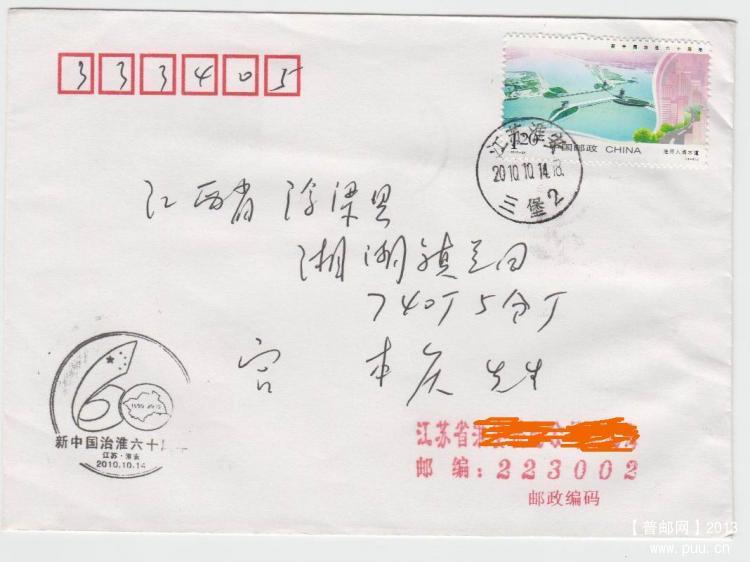 333405
新中国治淮六十周年
1.20
中国邮政 CHINA
淮河入海水道
江苏淮安
2010.10.14.18
三堡2
江西省浮梁县
湘湖镇
740厂5分厂
宫 本庆 先生
60
新中国治淮六十
江苏·淮安
2010.10.14
江苏省淮
邮编:223002
邮政编码
【普邮网】2013
www.puu.cn